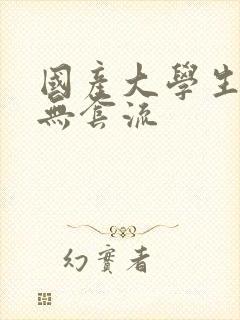 國產大學生
無套流
幻實者